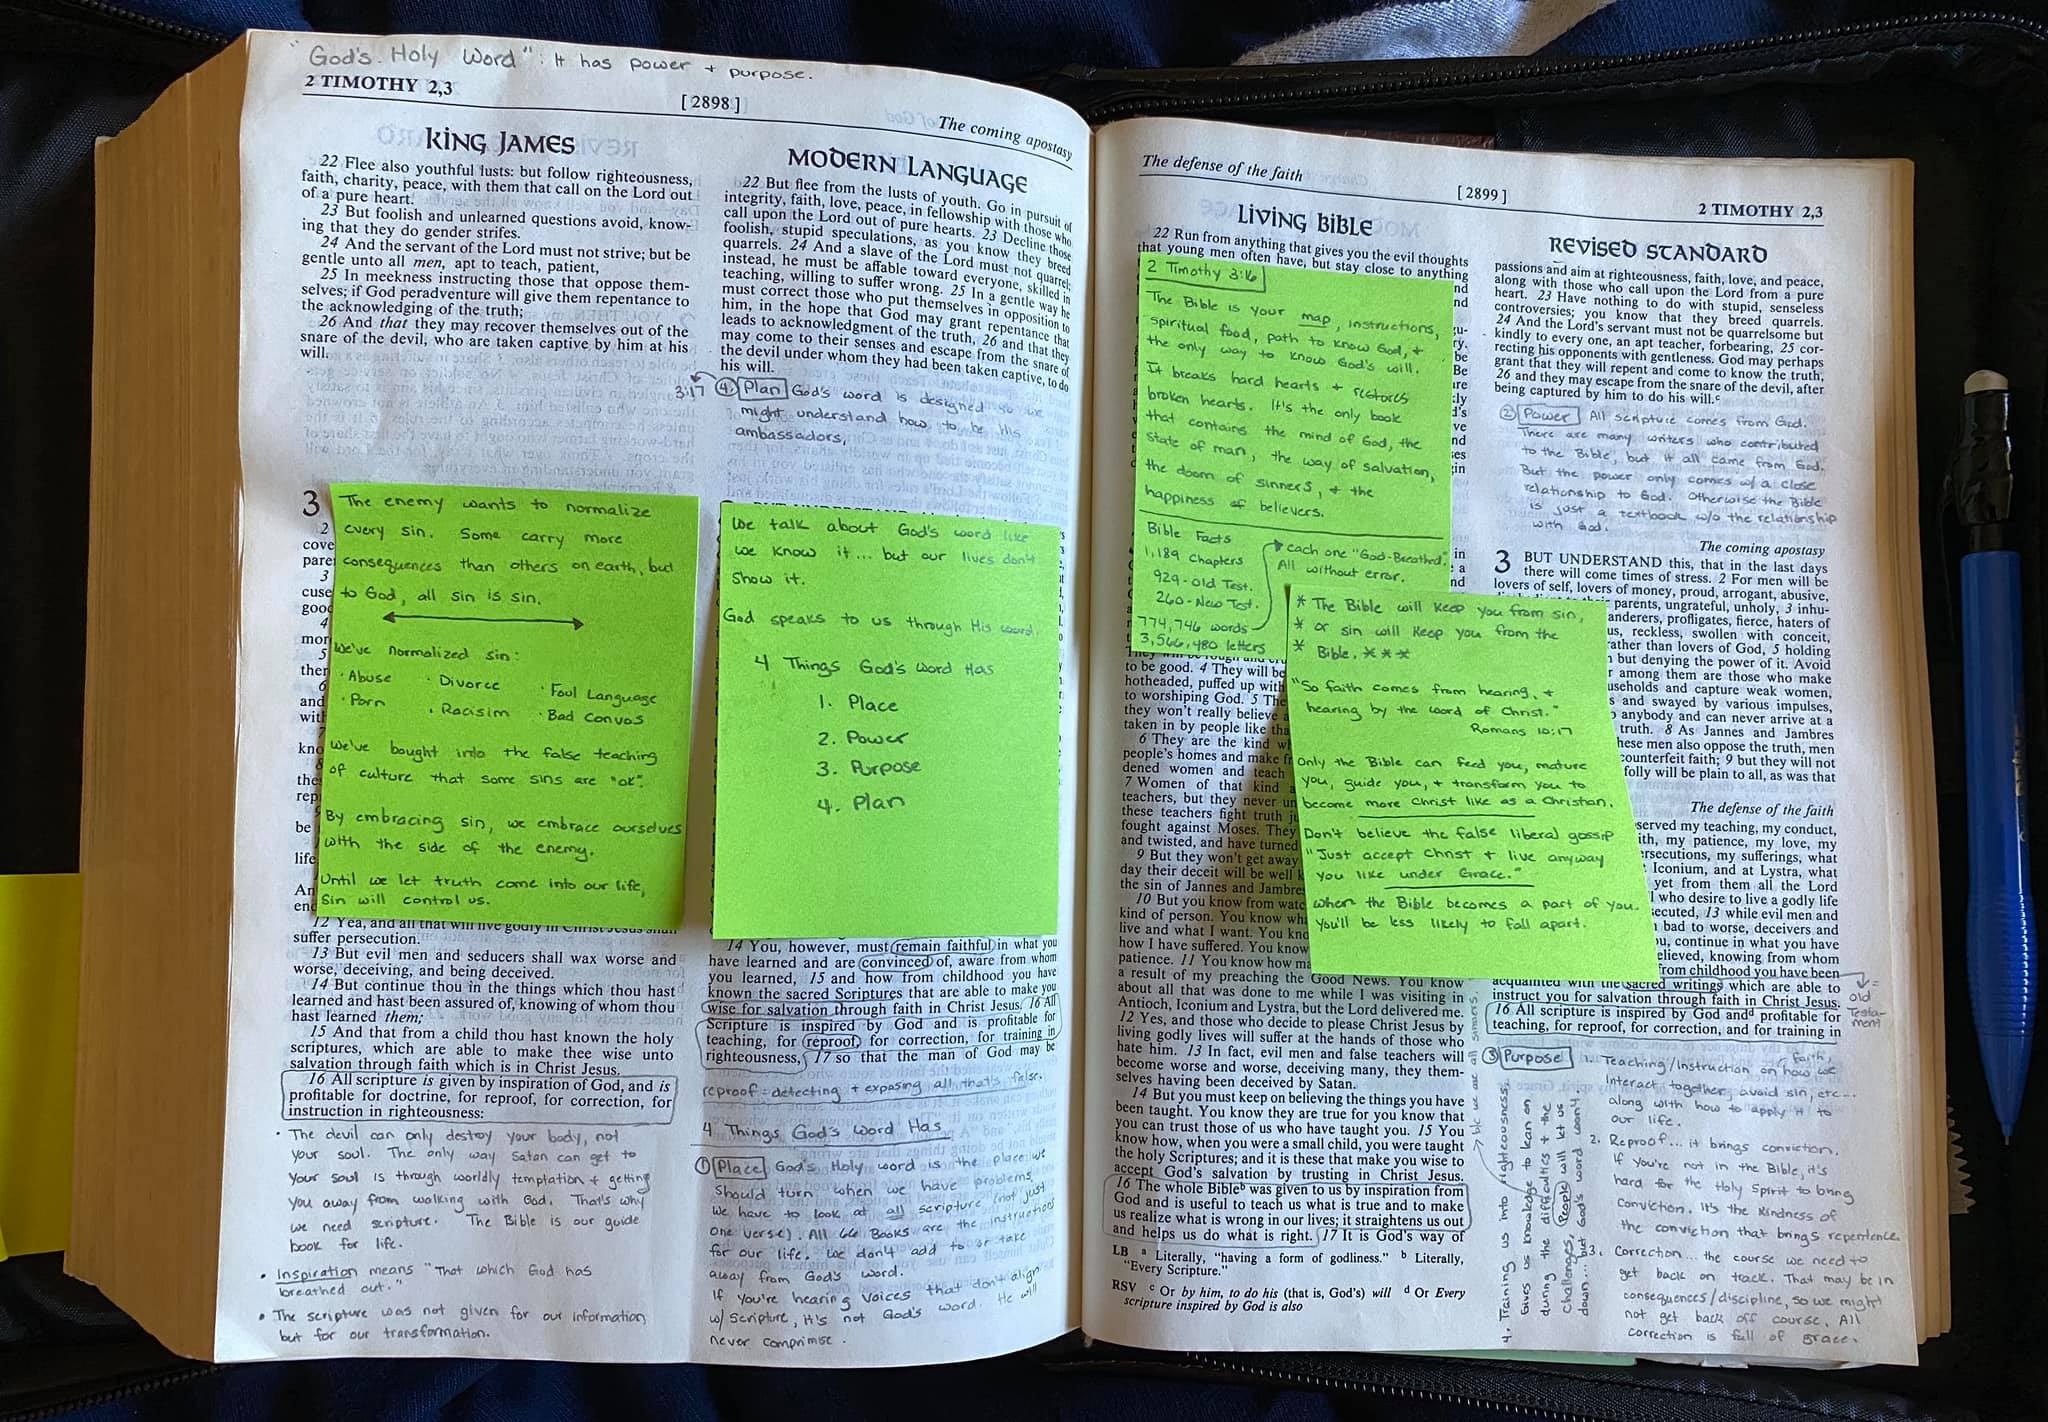 "God's Holy Word": It has power + purpose.
2 TIMOTHY 2,3
[2898]
The coming apostasy
KING JAMES
22 Flee also youthful lusts: but follow righteousness,
faith, charity, peace, with them that call on the Lord out
of a pure heart.
23 But foolish and unlearned questions avoid, know-
ing that they do gender strifes.
24 And the servant of the Lord must not strive; but be
gentle unto all men, apt to teach, patient,
25 In meekness instructing those that oppose them-
selves; if God peradventure will give them repentance to
the acknowledging of the truth;
26 And that they may recover themselves out of the
snare of the devil, who are taken captive by him at his
will.
3
The enemy wants to normalize
every sin. Some carry more
consequences than others on earth, but
to God, all sin is sin.
We've normalized sin:
· Abuse · Divorce · Foul Language
· Porn · Racisim · Bad Convos
We've bought into the false teaching
of culture that some sins are "ok".
By embracing sin, we embrace ourselves
with the side of the enemy.
Until we let truth come into our life,
sin will control us.
12 Yea, and all that will live godly in Christ Jesus shall
suffer persecution.
13 But evil men and seducers shall wax worse and
worse, deceiving, and being deceived.
14 But continue thou in the things which thou hast
learned and hast been assured of, knowing of whom thou
hast learned them;
15 And that from a child thou hast known the holy
scriptures, which are able to make thee wise unto
salvation through faith which is in Christ Jesus.
16 All scripture is given by inspiration of God, and is
profitable for doctrine, for reproof, for correction, for
instruction in righteousness:
· The devil can only destroy your body, not
your soul. The only way Satan can get to
your soul is through worldly temptation + getting
you away from walking with God. That's why
we need scripture. The Bible is our guide
book for life.
· Inspiration means "That which God has
breathed out."
· The scripture was not given for our information
but for our transformation.
MODERN LANGUAGE
22 But flee from the lusts of youth. Go in pursuit of
integrity, faith, love, peace, in fellowship with those who
call upon the Lord out of pure hearts. 23 Decline those
foolish, stupid speculations, as you know they breed
quarrels. 24 And a slave of the Lord must not quarrel;
instead, he must be affable toward everyone, skilled in
teaching, willing to suffer wrong. 25 In a gentle way he
must correct those who put themselves in opposition to
him, in the hope that God may grant repentance that
leads to acknowledgment of the truth, 26 and that they
may come to their senses and escape from the snare of
the devil under whom they had been taken captive, to do
his will.
3:17 4. Plan God's word is designed so we
might understand how to be His
ambassadors,
We talk about God's word like
we know it... but our lives don't
show it.
God speaks to us through His word.
4 Things God's word Has
1. Place
2. Power
3. Purpose
4. Plan
14 You, however, must remain faithful in what you
have learned and are convinced of, aware from whom
you learned, 15 and how from childhood you have
known the sacred Scriptures that are able to make you
wise for salvation through faith in Christ Jesus. 16 All
Scripture is inspired by God and is profitable for
teaching, for reproof, for correction, for training in
righteousness, 17 so that the man of God may be
reproof = detecting + exposing all that's false.
4 Things God's Word Has
1 Place God's Holy word is the place we
should turn when we have problems
we have to look at all scripture (not just
one verse). All 66 Books are the instructions
for our life. We don't add to or take
away from God's word.
If you're hearing voices that don't align
w/ Scripture, it's not God's word. He will
never comprimise.
The defense of the faith
[2899]
2 TIMOTHY 2,3
LIVING BIBLE
22 Run from anything that gives you the evil thoughts
that young men often have, but stay close to anything
2 Timothy 3:16
The Bible is your map, instructions,
spiritual food, path to know God, +
the only way to know God's will.
It breaks hard hearts + restores
broken hearts. It's the only book
that contains the mind of God, the
state of man, the way of salvation,
the doom of sinners, + the
happiness of believers.
Bible Facts
1,189 Chapters
929 - Old Test.
260 - New Test.
774,746 words
3,566,480 letters
each one "God-Breathed".
All without error.
* The Bible will keep you from sin,
* or sin will keep you from the
* Bible. * * *
"So faith comes from hearing, +
hearing by the word of Christ."
Romans 10:17
Only the Bible can feed you, mature
you, guide you, + transform you to
become more Christ like as a Christian.
Don't believe the false liberal gossip
"Just accept Christ + live anyway
you like under Grace."
When the Bible becomes a part of you.
You'll be less likely to fall apart.
to be good. 4 They will be
hotheaded, puffed up with
to worshiping God. 5 The
they won't really believe a
taken in by people like tha
6 They are the kind w
people's homes and make f
dened women and teach
7 Women of that kind a
teachers, but they never un
these teachers fight truth ju
fought against Moses. They
and twisted, and have turned
9 But they won't get away
day their deceit will be well k
the sin of Jannes and Jambres
10 But you know from watc
kind of person. You know wha
live and what I want. You kno
how I have suffered. You know
patience. 11 You know how ma
a result of my preaching the Good News. You know
about all that was done to me while I was visiting in
Antioch, Iconium and Lystra, but the Lord delivered me.
12 Yes, and those who decide to please Christ Jesus by
living godly lives will suffer at the hands of those who
hate him. 13 In fact, evil men and false teachers will
become worse and worse, deceiving many, they them-
selves having been deceived by Satan.
14 But you must keep on believing the things you have
been taught. You know they are true for you know that
you can trust those of us who have taught you. 15 You
know how, when you were a small child, you were taught
the holy Scriptures; and it is these that make you wise to
accept God's salvation by trusting in Christ Jesus.
16 The whole Bibleᵇ was given to us by inspiration from
God and is useful to teach us what is true and to make
us realize what is wrong in our lives; it straightens us out
and helps us do what is right. 17 It is God's way of
LB ᵃ Literally, "having a form of godliness." ᵇ Literally,
"Every Scripture."
RSV ᶜ Or by him, to do his (that is, God's) will ᵈ Or Every
scripture inspired by God is also
REVISED STANDARD
passions and aim at righteousness, faith, love, and peace,
along with those who call upon the Lord from a pure
heart. 23 Have nothing to do with stupid, senseless
controversies; you know that they breed quarrels.
24 And the Lord's servant must not be quarrelsome but
kindly to every one, an apt teacher, forbearing, 25 cor-
recting his opponents with gentleness. God may perhaps
grant that they will repent and come to know the truth,
26 and they may escape from the snare of the devil, after
being captured by him to do his will.ᶜ
2 Power All scripture comes from God.
There are many writers who contributed
to the Bible, but it all came from God.
But the power only comes w/ a close
relationship to God. Otherwise the Bible
is just a textbook w/o the relationship
with God.
The coming apostasy
3 BUT UNDERSTAND this, that in the last days
there will come times of stress. 2 For men will be
lovers of self, lovers of money, proud, arrogant, abusive,
parents, ungrateful, unholy, 3 inhu-
anderers, profligates, fierce, haters of
us, reckless, swollen with conceit,
rather than lovers of God, 5 holding
but denying the power of it. Avoid
r among them are those who make
useholds and capture weak women,
s and swayed by various impulses,
o anybody and can never arrive at a
truth. 8 As Jannes and Jambres
hese men also oppose the truth, men
counterfeit faith; 9 but they will not
folly will be plain to all, as was that
The defense of the faith
served my teaching, my conduct,
ith, my patience, my love, my
ersecutions, my sufferings, what
Iconium, and at Lystra, what
yet from them all the Lord
l who desire to live a godly life
secuted, 13 while evil men and
bad to worse, deceivers and
u, continue in what you have
elieved, knowing from whom
from childhood you have been
acquainted with the sacred writings which are able to
instruct you for salvation through faith in Christ Jesus.
16 All scripture is inspired by God andᵈ profitable for
teaching, for reproof, for correction, and for training in
= old Testament
3 Purpose 1. Teaching/Instruction on how we
faith,
interact together, avoid sin, etc...
along with how to apply it to
our life.
2. Reproof... it brings conviction.
If you're not in the Bible, it's
hard for the Holy Spirit to bring
conviction. It's the kindness of
the conviction that brings repentence.
3. Correction... the course we need to
get back on track. That may be in
consequences/discipline, so we might
not get back off course. All
correction is full of grace.
4. Training us into righteousness.
Gives us knowledge to lean on
during the difficulties + the
challenges. People will let us
down... but God's word won't
b/c we are all sinners.